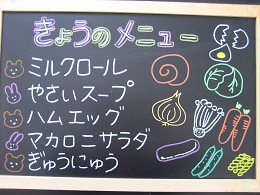 きょうのメニュー
ミルクロール
やさいスープ
ハムエッグ
マカロニサラダ
ぎゅうにゅう